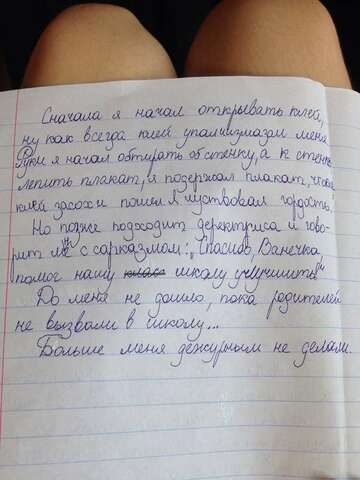 Сначала я начал открывать клей,
ну как всегда клей упалчизмазал меня.
Руки я начал обтирать об стенку, а к стенке
лепить плакат, я подержал плакат, чтобы
клей засох и пошел. Я чуствовал гордость.
Но позже подходит деректриса и гово-
рит мне с сарказмом: "Спасибо, Ванечка
помог нашу класс школу улучшить"
До меня не дошло, пока родителей
не вызвали в школу...
Больше меня дежурным не делали.